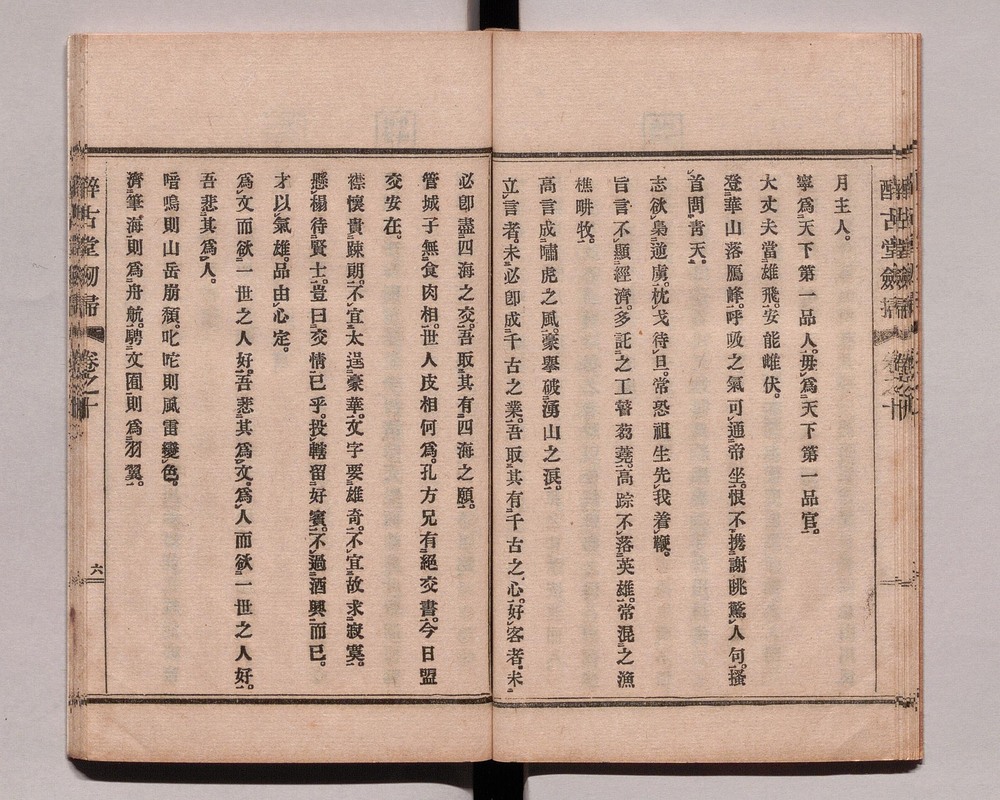 醉古堂劔掃
卷之十
月主人。
寧爲天下第一品人。毋爲天下第一品官。
大丈夫當雄飛。安能雌伏。
登華山落鴈峰。呼吸之氣可通帝坐。恨不携謝眺驚人句。搔
首問靑天。
志欲梟逆虜。枕戈待旦。常恐祖生先我着鞭。
旨言不顯。經濟多託之工瞽芻蕘。高踪不落。英雄常混之漁
樵畊牧。
高言成嘯虎之風。豪擧破湧山之浪。
立言者。未必卽成千古之業。吾取其有千古之心。好客者。未
必卽盡四海之交。吾取其有四海之願。
管城子無食肉相。世人皮相何爲。孔方兄有絕交書。今日盟
交安在。
襟懷貴踈朗。不宜太逞豪華。文字要雄奇。不宜故求寂寞。
懸榻待賢士。豈曰交情已乎。投轄留好賓。不過酒興而已。
才以氣雄。品由心定。
爲文而欲一世之人好。吾悲其爲文。爲人而欲一世之人好。
吾悲其爲人。
喑嗚則山岳崩頽。叱咜則風雷變色。
濟筆海則爲舟航。騁文囿則爲羽翼。
醉古堂劔掃
卷之十
六